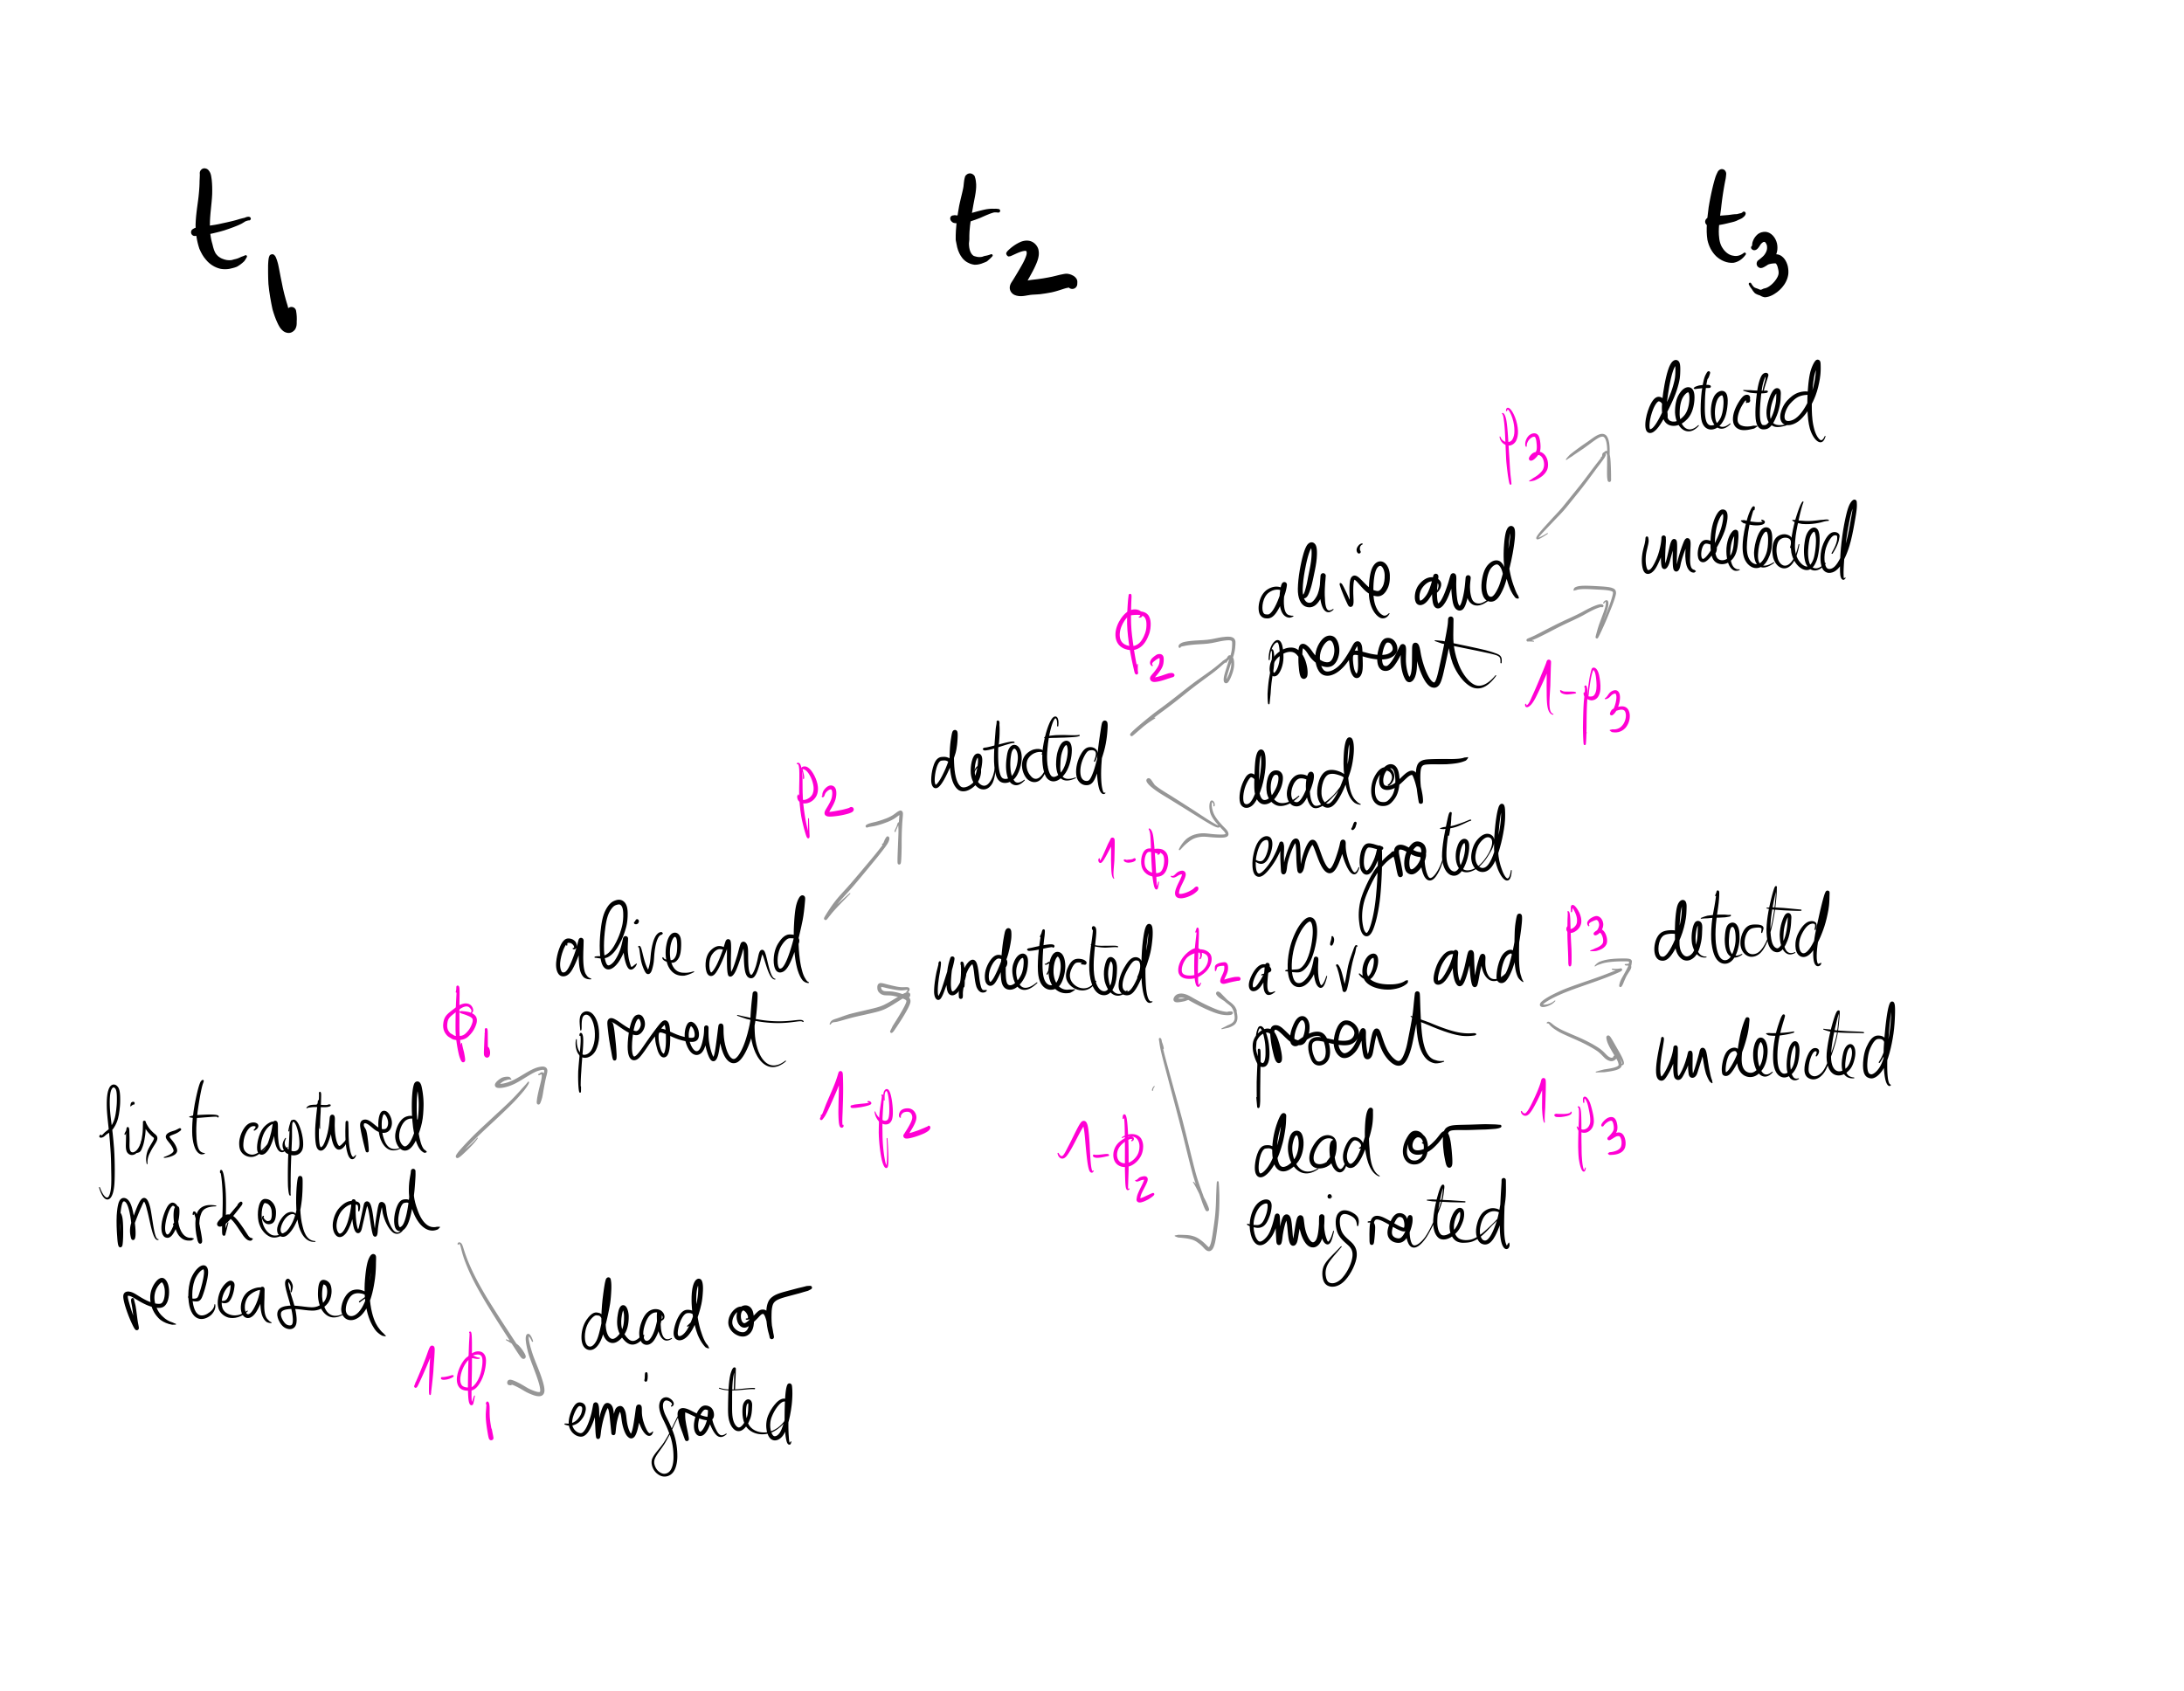 t1
t2
t3
first captured
marked and
released
ϕ1
1-ϕ1
alive and
present
dead or
emigrated
p2
1-p2
detected
undetected
ϕ2
1-ϕ2
alive and
present
dead or
emigrated
ϕ2
1-ϕ2
alive and
present
dead or
emigrated
p3
1-p3
detected
undetected
p3
1-p3
detected
undetected